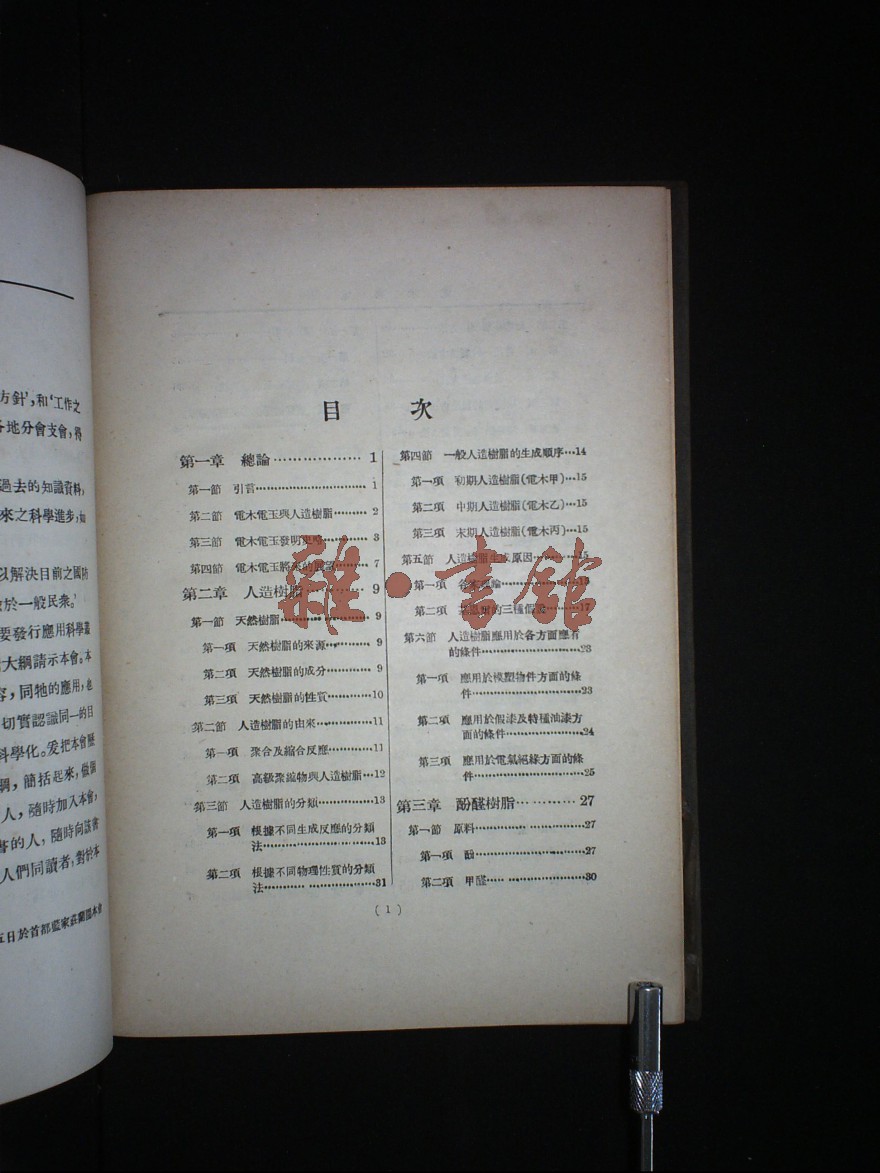 方針’,和‘工作之
各地分會支會,將
過去的知識資料,
來之科學進步,如
以解決目前之國防
於一般民衆。’
要發行應用科學叢
大綱請示本會。本
容,同牠的應用,也
切實認識同一的目
科學化。爰把本會歷
綱,簡括起來,做個
人,隨時加入本會,
書的人,隨時向該書
人們同讀者,對於本
五日於首都藍家莊蘭園本會
目 次
第一章 總論··················· 1
第一節 引言······························ 1
第二節 電木電玉與人造樹脂········· 2
第三節 電木電玉發明史略··········· 3
第四節 電木電玉將來的展望········· 7
第二章 人造樹脂············ 9
第一節 天然樹脂······················· 9
第一項 天然樹脂的來源··········· 9
第二項 天然樹脂的成分··········· 9
第三項 天然樹脂的性質···········10
第二節 人造樹脂的由來············11
第一項 聚合及縮合反應···········11
第二項 高級聚縮物與人造樹脂···12
第三節 人造樹脂的分類············13
第一項 根據不同生成反應的分類
法······························13
第二項 根據不同物理性質的分類
法······························31
第四節 一般人造樹脂的生成順序···14
第一項 初期人造樹脂(電木甲)···15
第二項 中期人造樹脂(電木乙)···15
第三項 末期人造樹脂(電木丙)···15
第五節 人造樹脂生成原因·········15
第一項
第二項 的三種假說······17
第六節 人造樹脂應用於各方面應有
的條件························23
第一項 應用於模塑物件方面的條
件······························23
第二項 應用於假漆及特種油漆方
面的條件·····················24
第三項 應用於電氣絕緣方面的條
件······························25
第三章 酚醛樹脂············ 27
第一節 原料···························27
第一項 酚···························27
第二項 甲醛························30
(1)
雜·書館